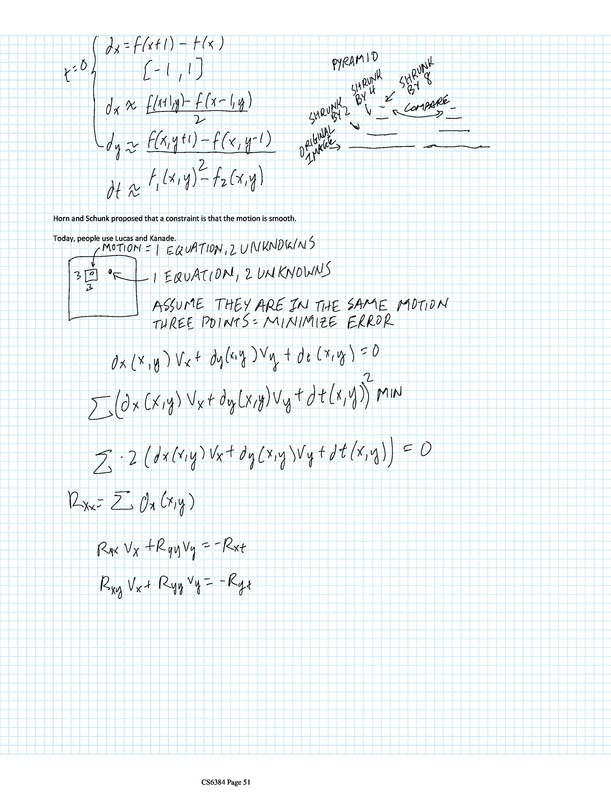 t=0
dx = f(x+1) - f(x)
[-1, 1]
dx ≈ f(x+1,y) - f(x-1,y) / 2
dy ≈ f(x,y+1) - f(x,y-1) / 2
dt ≈ f₁(x,y) - f₂(x,y)
PYRAMID
ORIGINAL IMAGE
SHRUNK BY 2
SHRUNK BY 4
SHRUNK BY 8
COMPARE
Horn and Schunk proposed that a constraint is that the motion is smooth.
Today, people use Lucas and Kanade.
MOTION = 1 EQUATION, 2 UNKNOWNS
3
3
1 EQUATION, 2 UNKNOWNS
ASSUME THEY ARE IN THE SAME MOTION
THREE POINTS = MINIMIZE ERROR
dx(x,y) Vx + dy(x,y) Vy + dt(x,y) = 0
∑(dx(x,y) Vx + dy(x,y) Vy + dt(x,y))² MIN
∑ · 2 (dx(x,y) Vx + dy(x,y) Vy + dt(x,y)) = 0
Rxx = ∑ dx(x,y)
Rxx Vx + Ryy Vy = -Rxt
Rxy Vx + Ryy Vy = -Ryt
CS6384 Page 51